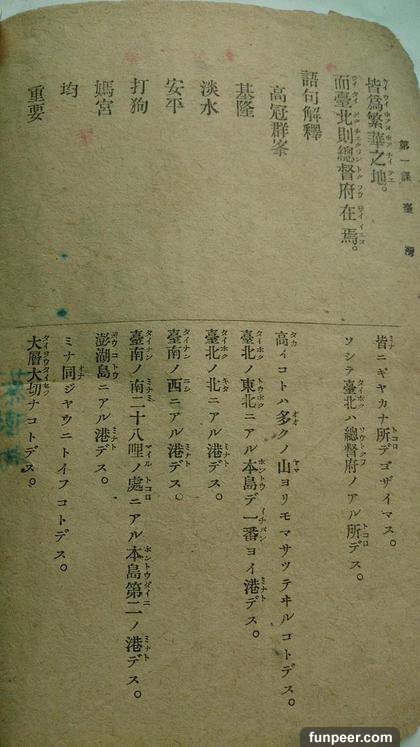 第一課 臺灣
皆爲繁華之地。
而臺北則總督府在焉。
語句解釋
高冠群峯
基隆
淡水
安平
打狗
媽宮
均
重要
皆ニギヤカナ所デゴザイマス。
ソシテ臺北ハ總督府ノアル所デス。
高イコトハ多クノ山ヨリモマサツテヰルコトデス。
臺北ノ東北ニアル本島デ一番ヨイ港デス。
臺北ノ北ニアル港デス。
臺南ノ西ニアル港デス。
臺南ノ南二十八哩ノ處ニアル本島第二ノ港デス。
澎湖島ニアル港デス。
ミナ同ジヤウニトイフコトデス。
大層大切ナコトデス。
funpeer.com